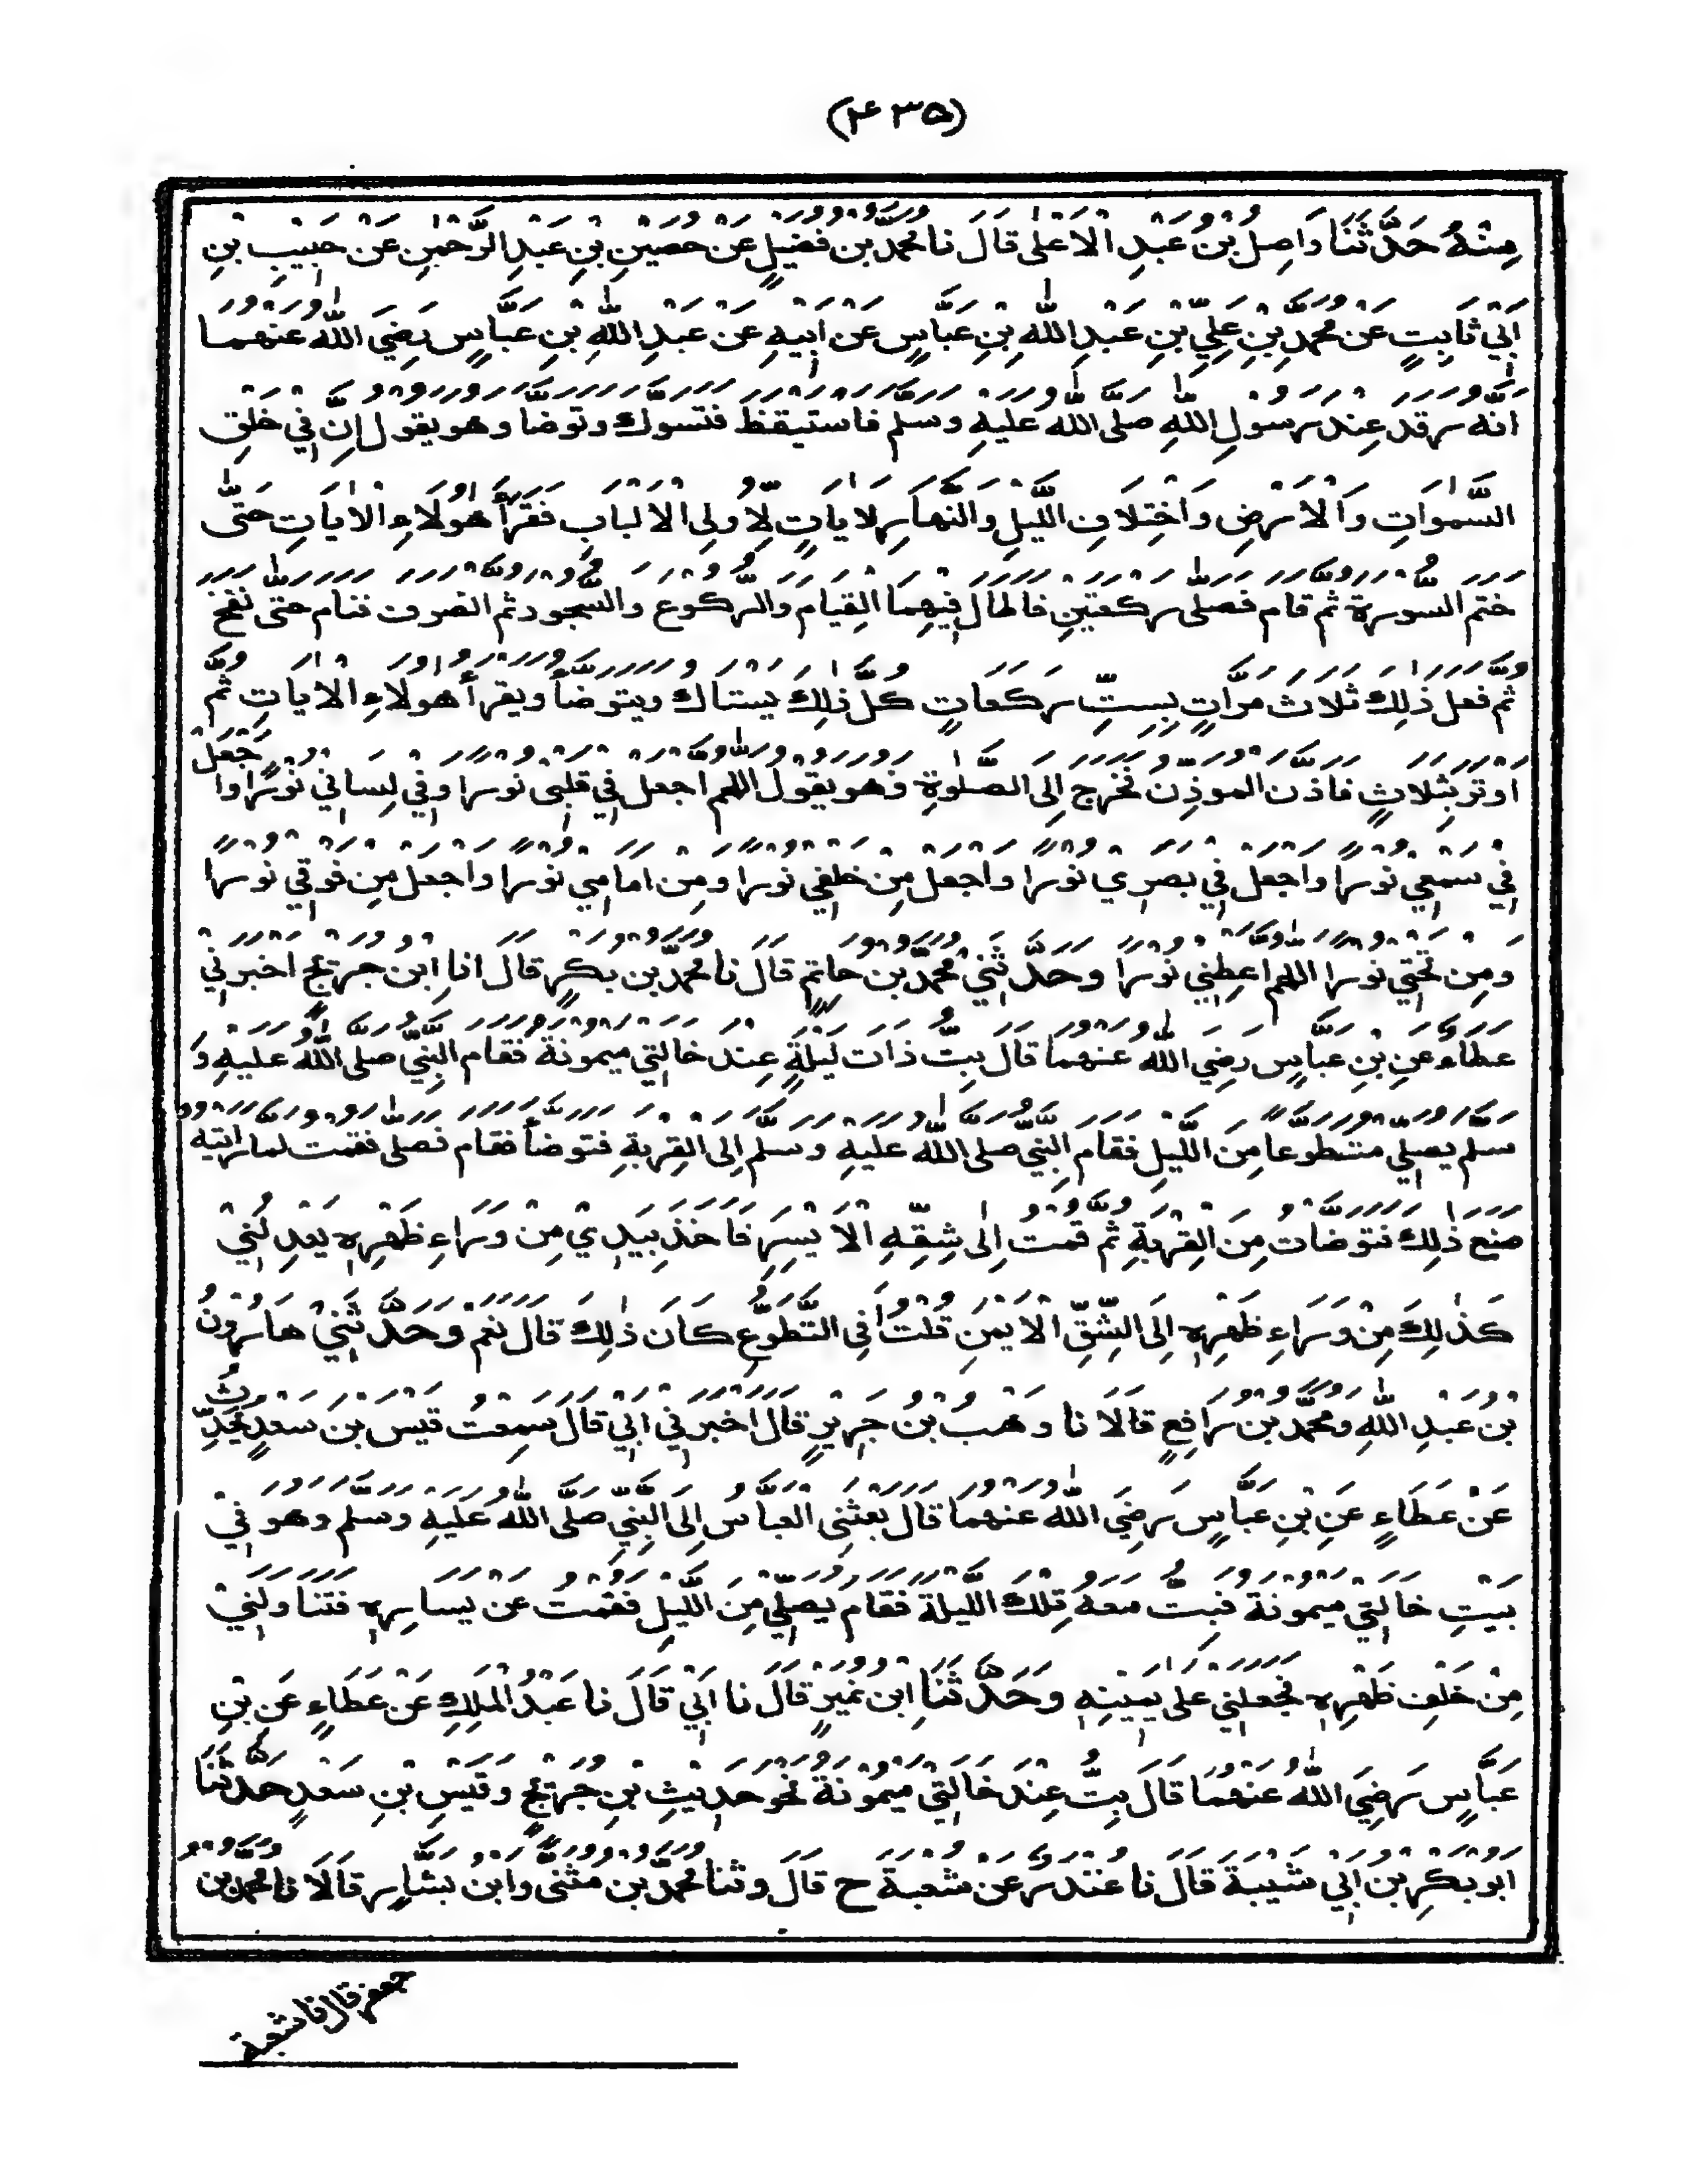 (۴۳۵)
مِنْهُ حَدَّثَنَا وَاصِلُ بْنُ عَبْدِ الْاَعْلٰى قَالَ نَا مُحَمَّدُ بْنُ فُضَيْلٍ عَنْ حُصَيْنِ بْنِ عَبْدِ الرَّحْمٰنِ عَنْ حَبِيْبِ بْنِ
اَبِيْ ثَابِتٍ عَنْ مُحَمَّدِ بْنِ عَلِيِّ بْنِ عَبْدِ اللّٰهِ بْنِ عَبَّاسٍ عَنْ اَبِيْهِ عَنْ عَبْدِ اللّٰهِ بْنِ عَبَّاسٍ رَضِيَ اللّٰهُ عَنْهُمَا
اَنَّهُ رَقَدَ عِنْدَ رَسُوْلِ اللّٰهِ صَلَّى اللّٰهُ عَلَيْهِ وَسَلَّمَ فَاسْتَيْقَظَ فَتَسَوَّكَ وَتَوَضَّاَ وَهُوَ يَقُوْلُ اِنَّ فِيْ خَلْقِ
السَّمٰوَاتِ وَالْاَرْضِ وَاخْتِلَافِ اللَّيْلِ وَالنَّهَارِ لَاٰيَاتٍ لِّاُولِى الْاَلْبَابِ فَقَرَأَ هٰؤُلَاءِ الْاٰيَاتِ حَتّٰى
خَتَمَ السُّوْرَةَ ثُمَّ قَامَ فَصَلّٰى رَكْعَتَيْنِ فَاَطَالَ فِيْهِمَا الْقِيَامَ وَالرُّكُوْعَ وَالسُّجُوْدَ ثُمَّ انْصَرَفَ فَنَامَ حَتّٰى نَفَخَ
ثُمَّ فَعَلَ ذٰلِكَ ثَلَاثَ مَرَّاتٍ بِسِتِّ رَكَعَاتٍ كُلَّ ذٰلِكَ يَسْتَاكُ وَيَتَوَضَّأُ وَيَقْرَأُ هٰؤُلَاءِ الْاٰيَاتِ ثُمَّ
اَوْتَرَ بِثَلَاثٍ فَاَذَّنَ الْمُؤَذِّنُ فَخَرَجَ اِلَى الصَّلٰوةِ وَهُوَ يَقُوْلُ اللّٰهُمَّ اجْعَلْ فِيْ قَلْبِىْ نُوْرًا وَفِيْ لِسَانِيْ نُوْرًا وَاجْعَلْ
فِيْ سَمْعِيْ نُوْرًا وَاجْعَلْ فِيْ بَصَرِيْ نُوْرًا وَاجْعَلْ مِنْ خَلْفِيْ نُوْرًا وَمِنْ اَمَامِيْ نُوْرًا وَاجْعَلْ مِنْ فَوْقِيْ نُوْرًا
وَمِنْ تَحْتِيْ نُوْرًا اللّٰهُمَّ اَعْطِنِيْ نُوْرًا وَحَدَّثَنِيْ مُحَمَّدُ بْنُ حَاتِمٍ قَالَ نَا مُحَمَّدُ بْنُ بَكْرٍ قَالَ اَنَا ابْنُ جُرَيْجٍ اَخْبَرَنِيْ
عَطَاءٌ عَنِ بْنِ عَبَّاسٍ رَضِيَ اللّٰهُ عَنْهُمَا قَالَ بِتُّ ذَاتَ لَيْلَةٍ عِنْدَ خَالَتِيْ مَيْمُوْنَةَ فَقَامَ النَّبِيُّ صَلَّى اللّٰهُ عَلَيْهِ وَ
سَلَّمَ يُصَلِّي مُتَطَوِّعًا مِنَ اللَّيْلِ فَقَامَ النَّبِيُّ صَلَّى اللّٰهُ عَلَيْهِ وَسَلَّمَ اِلَى الْقِرْبَةِ فَتَوَضَّأَ فَقَامَ فَصَلّٰى فَقُمْتُ لَمَّا رَاَيْتُهُ
صَنَعَ ذٰلِكَ فَتَوَضَّاْتُ مِنَ الْقِرْبَةِ ثُمَّ قُمْتُ اِلٰى شِقِّهِ الْاَيْسَرِ فَاَخَذَ بِيَدِيْ مِنْ وَرَاءِ ظَهْرِهٖ يَعْدِلُنِيْ
كَذٰلِكَ مِنْ وَرَاءِ ظَهْرِهٖ اِلَى الشِّقِّ الْاَيْمَنِ قُلْتُ اَفِي التَّطَوُّعِ كَانَ ذٰلِكَ قَالَ نَعَمْ وَحَدَّثَنِيْ هَارُوْنُ
بْنُ عَبْدِ اللّٰهِ وَمُحَمَّدُ بْنُ رَافِعٍ قَالَا نَا وَهْبُ بْنُ جَرِيْرٍ قَالَ اَخْبَرَنِيْ اَبِيْ قَالَ سَمِعْتُ قَيْسَ بْنَ سَعْدٍ يُحَدِّثُ
عَنْ عَطَاءٍ عَنِ بْنِ عَبَّاسٍ رَضِيَ اللّٰهُ عَنْهُمَا قَالَ بَعَثَنِى الْعَبَّاسُ اِلَى النَّبِيِّ صَلَّى اللّٰهُ عَلَيْهِ وَسَلَّمَ وَهُوَ فِيْ
بَيْتِ خَالَتِيْ مَيْمُوْنَةَ فَبِتُّ مَعَهُ تِلْكَ اللَّيْلَةَ فَقَامَ يُصَلِّيْ مِنَ اللَّيْلِ فَقُمْتُ عَنْ يَسَارِهٖ فَتَنَاوَلَنِيْ
مِنْ خَلْفِ ظَهْرِهٖ فَجَعَلَنِيْ عَلٰى يَمِيْنِهٖ وَحَدَّثَنَا ابْنُ نُمَيْرٍ قَالَ نَا اَبِيْ قَالَ نَا عَبْدُ الْمَلِكِ عَنْ عَطَاءٍ عَنِ بْنِ
عَبَّاسٍ رَضِيَ اللّٰهُ عَنْهُمَا قَالَ بِتُّ عِنْدَ خَالَتِيْ مَيْمُوْنَةَ نَحْوَ حَدِيْثِ بْنِ جُرَيْجٍ وَقَيْسِ بْنِ سَعْدٍ حَدَّثَنَا
اَبُوْ بَكْرِ بْنُ اَبِيْ شَيْبَةَ قَالَ نَا غُنْدَرٌ عَنْ شُعْبَةَ ح قَالَ وَثَنَا مُحَمَّدُ بْنُ مُثَنّٰى وَابْنُ بَشَّارٍ قَالَا نَا مُحَمَّدُ بْنُ
جعفر قال نا شعبة